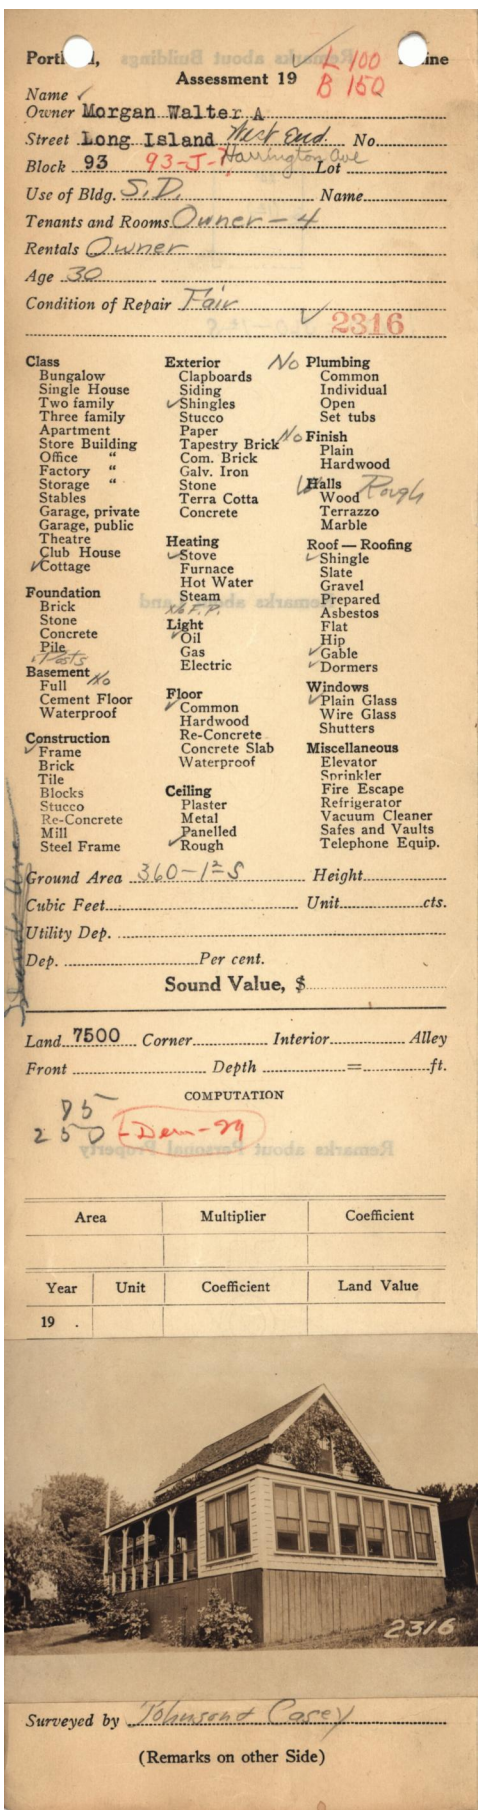 Portland, Maine
L 100
Assessment 19
B 150
Name ✓
Owner Morgan Walter A
Street Long Island West End. No.
Harrington Ave
Block 93 93-J-7 Lot
Use of Bldg. S.D. Name
Tenants and Rooms Owner – 4
Rentals Owner
Age 30
Condition of Repair Fair
✓ 2316
Class
Bungalow
Single House
Two family
Three family
Apartment
Store Building
Office "
Factory "
Storage "
Stables
Garage, private
Garage, public
Theatre
Club House
✓ Cottage
Foundation
Brick
Stone
Concrete
Pile
✓ Posts
Basement No
Full
Cement Floor
Waterproof
Construction
✓ Frame
Brick
Tile
Blocks
Stucco
Re-Concrete
Mill
Steel Frame
Exterior
Clapboards
Siding
✓ Shingles
Stucco
Paper
Tapestry Brick
Com. Brick
Galv. Iron
Stone
Terra Cotta
Concrete
Heating
✓ Stove
Furnace
Hot Water
Steam
No F.P.
Light
✓ Oil
Gas
Electric
Floor
✓ Common
Hardwood
Re-Concrete
Concrete Slab
Waterproof
Ceiling
Plaster
Metal
Panelled
✓ Rough
No Plumbing
Common
Individual
Open
Set tubs
No Finish
Plain
Hardwood
Halls
Wood Rough
Terrazzo
Marble
Roof — Roofing
✓ Shingle
Slate
Gravel
Prepared
Asbestos
Flat
Hip
✓ Gable
✓ Dormers
Windows
✓ Plain Glass
Wire Glass
Shutters
Miscellaneous
Elevator
Sprinkler
Fire Escape
Refrigerator
Vacuum Cleaner
Safes and Vaults
Telephone Equip.
Ground Area 360–1½ S Height
Cubic Feet Unit cts.
Utility Dep.
Dep. Per cent.
Sound Value, $
Land 7500 Corner Interior Alley
Front Depth = ft.
COMPUTATION
75
250 – Dem – 29
Area Multiplier Coefficient
Year Unit Coefficient Land Value
19 .
2316
Surveyed by Johnson & Casey
(Remarks on other Side)